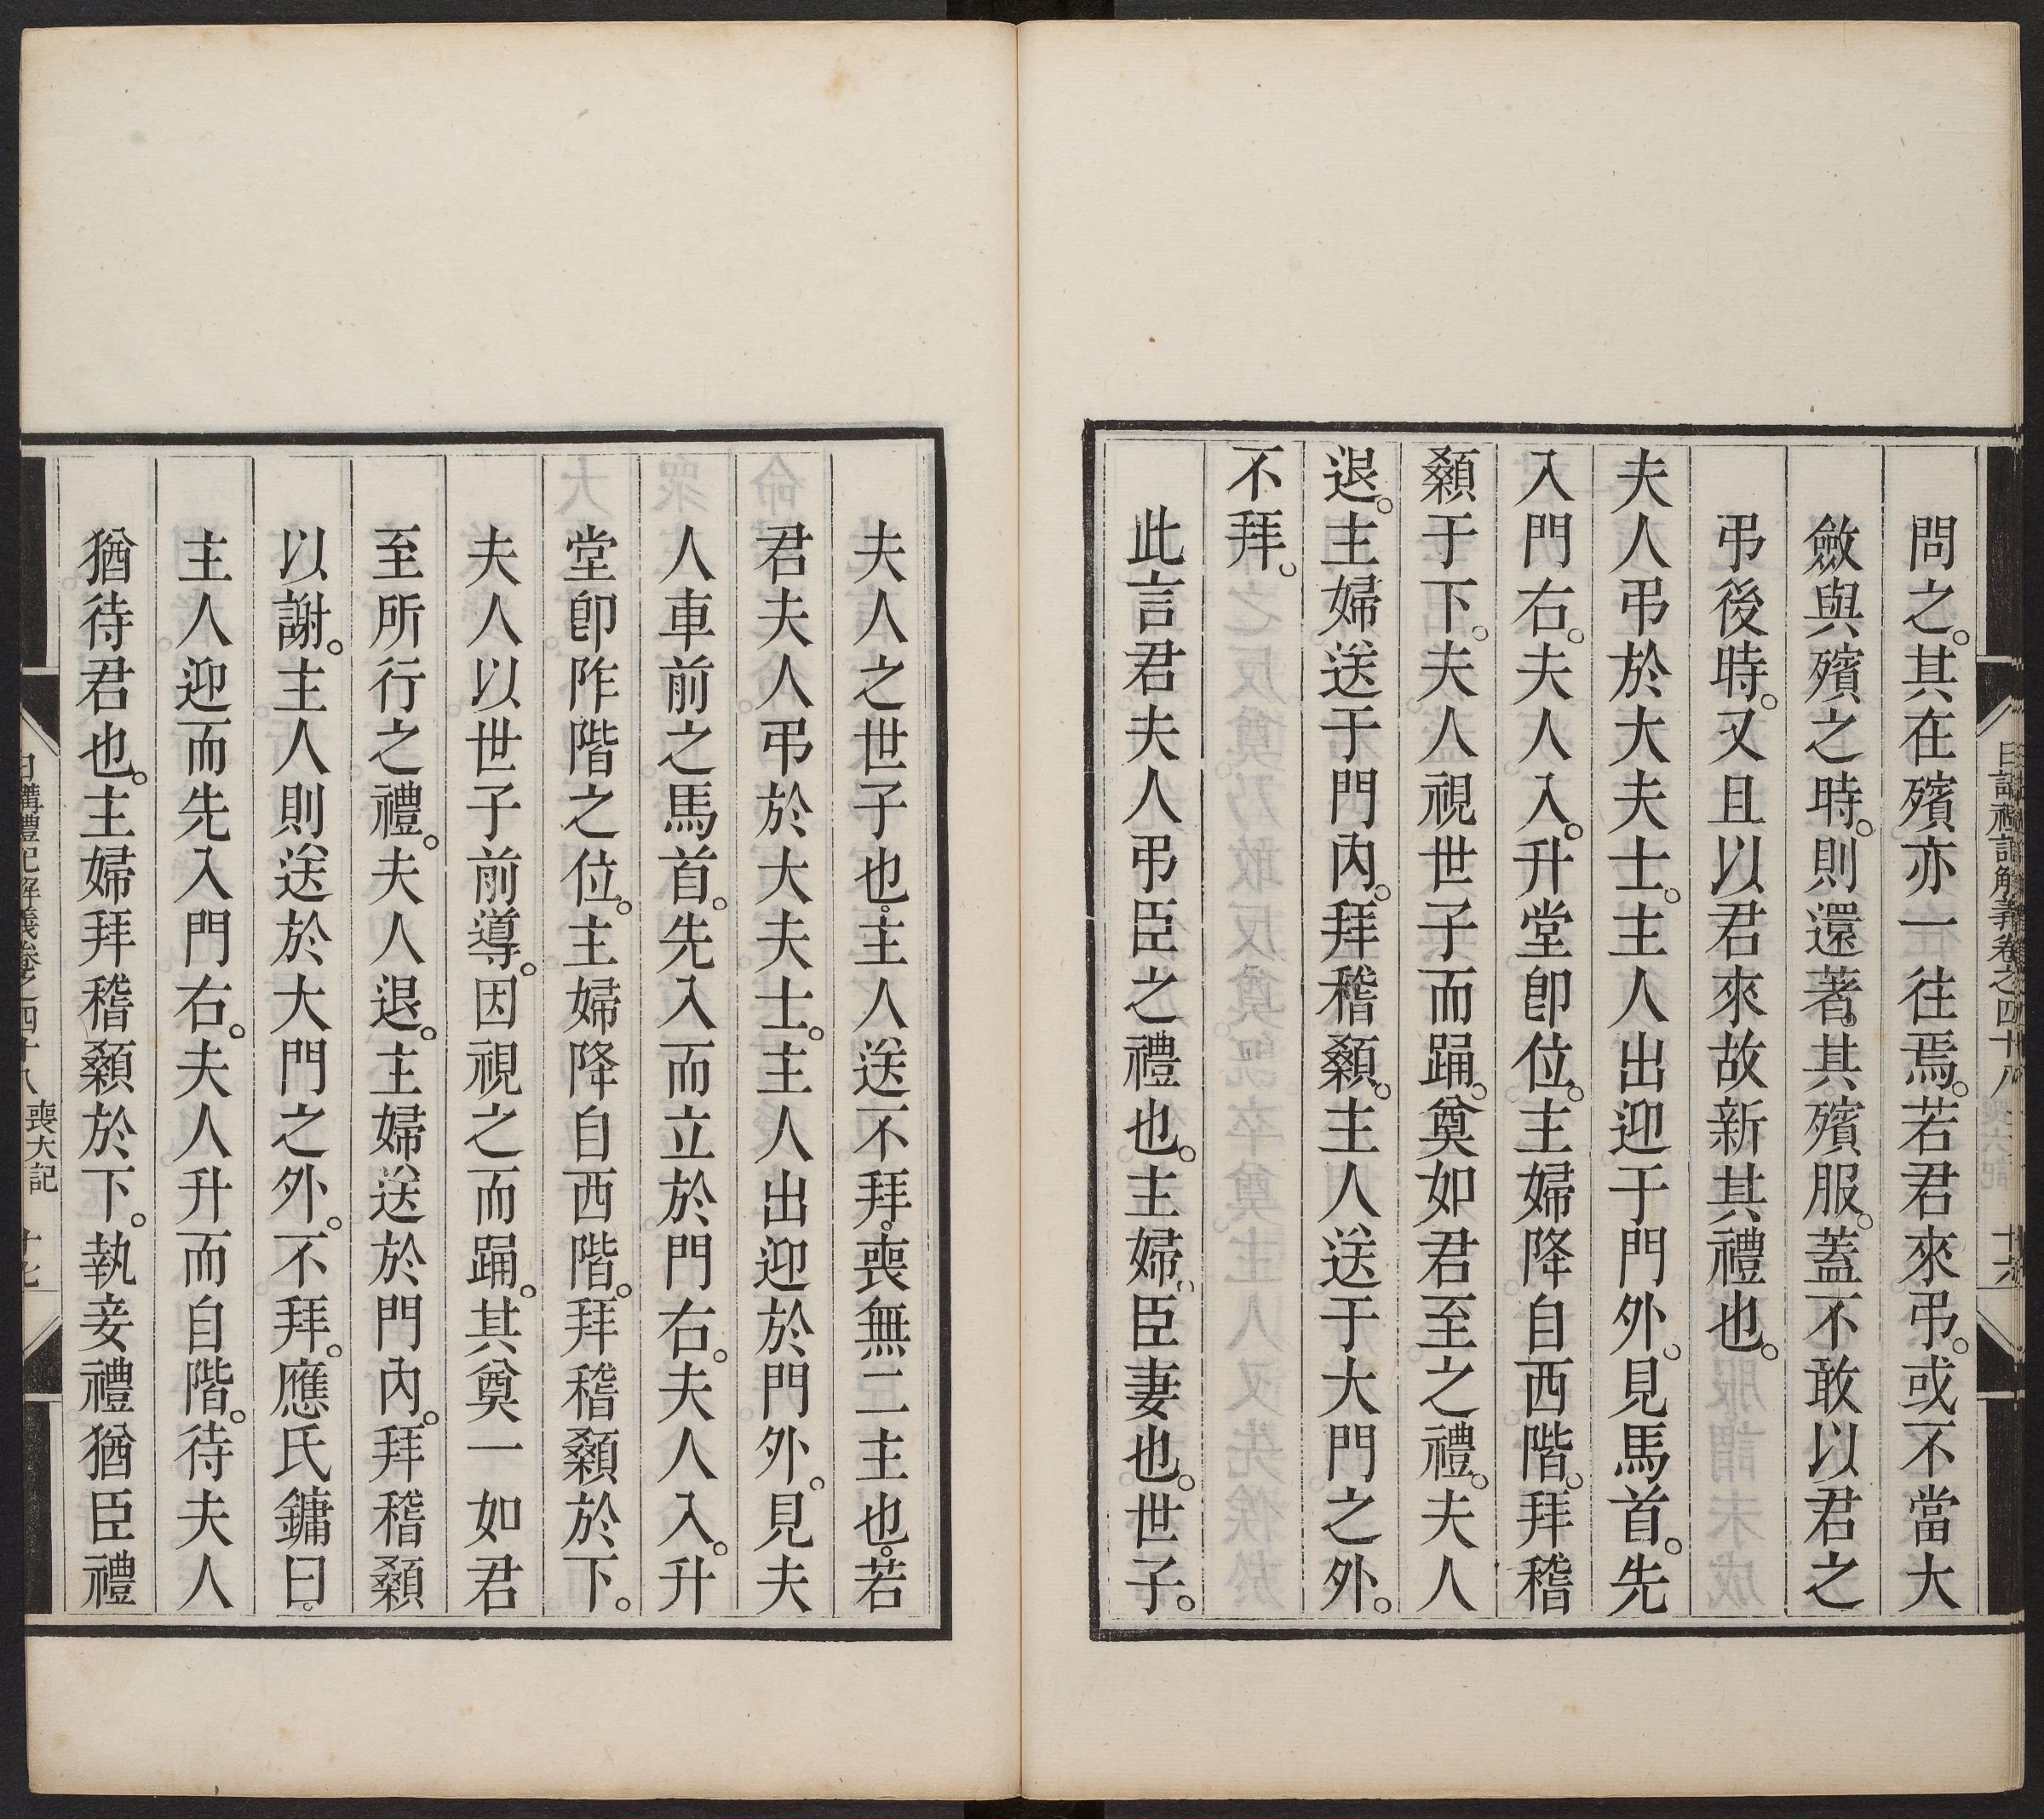 問之。其在殯亦一往焉。若君來弔。或不當大
斂與殯之時。則還著其殯服。蓋不敢以君之
弔後時。又且以君來故新其禮也。
夫人弔於大夫士。主人出迎于門外。見馬首。先
入門右。夫人入。升堂卽位。主婦降自西階。拜稽
顙于下。夫人視世子而踊。奠如君至之禮。夫人
退。主婦送于門內。拜稽顙。主人送于大門之外。
不拜。
此言君夫人弔臣之禮也。主婦。臣妻也。世子。
日講禮記解義卷之四十八
十六
夫人之世子也。主人送不拜。喪無二主也。若
君夫人弔於大夫士。主人出迎於門外。見夫
人車前之馬首。先入而立於門右。夫人入。升
堂卽阼階之位。主婦降自西階。拜稽顙於下。
夫人以世子前導。因視之而踊。其奠一如君
至所行之禮。夫人退。主婦送於門內。拜稽顙
以謝。主人則送於大門之外。不拜。應氏鏞曰。
主人迎而先入門右。夫人升而自階。待夫人
猶待君也。主婦拜稽顙於下。執妾禮猶臣禮
日講禮記解義卷之四十八 喪大記 十七